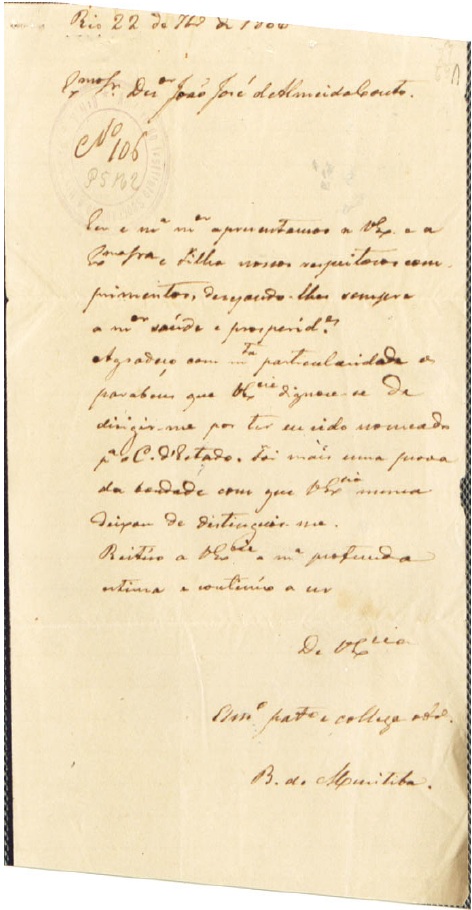 Rio 22 de 7bro de 1866
Exmo Sr. Desor João José d'Almeida Couto.
No 106
PS 162
Eu e ma mer apresentamos a VEx. e a
Exma Sra e Filha nossos respeitosos com-
primentos, desejando-lhes sempre
a mor saúde e prosperide.
Agradeço com mta particularidade os
parabens que VExcia dignou-se de
dirigir-me por ter eu sido nomeado
pa o C. d'Estado. Foi mais uma prova
da bondade com que VExcia nunca
deixou de distinguir-me.
Reitéro a VExcia a ma profunda
estima e continúo a ser
De VExcia
pato e collega
B. de Muritiba.